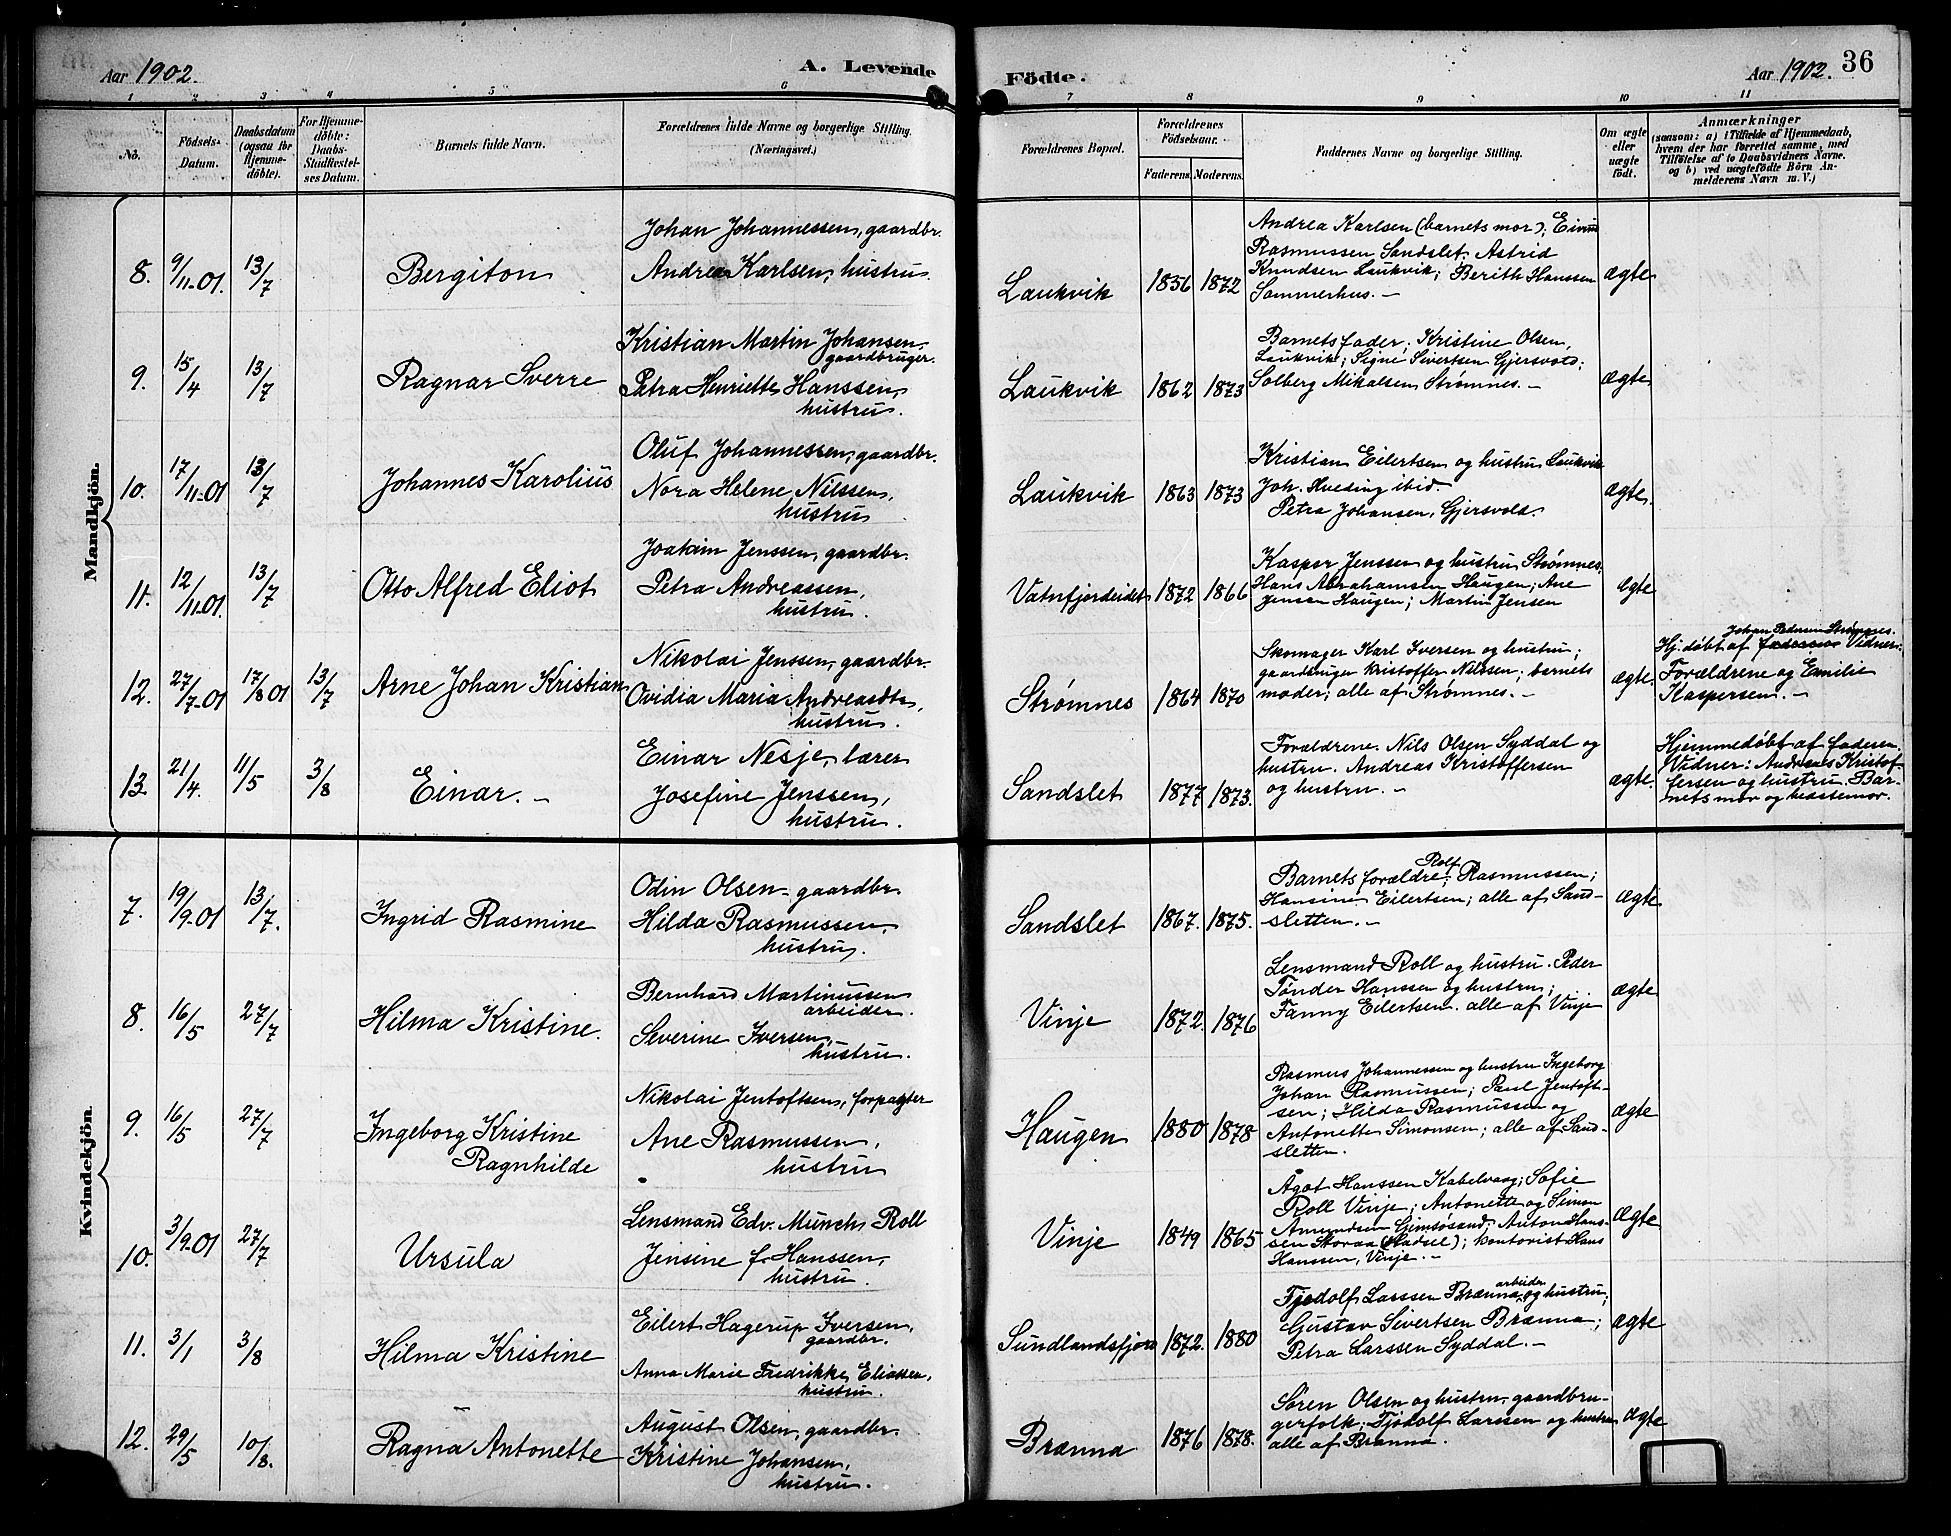 Aar 1902.
A. Levende
Födte.
Aar 1902.
36
1 2 3 4 5 6 7 8 9 10 11
No.
Födsels-
Datum.
Daabsdatum
(ogsaa for
Hjemme-
döbte).
For Hjemme-
döbte:
Daabs-
Stadfæstel-
ses Datum.
Barnets fulde Navn.
Forældrenes fulde Navne og borgerlige Stilling.
(Næringsvei.)
Forældrenes Bopæl.
Forældrenes
Födselsaar.
Faderens.
Moderens.
Faddernes Navne og borgerlige Stilling.
Om ægte
eller
uægte
födt.
Anmærkninger
(saasom: a) i Tilfælde af Hjemmedaab,
hvem der har forrettet samme, med
Tilföielse af to Daabsvidners Navne.
og b) ved uægtefödte Börn An-
melderens Navn m. V.)
Mandkjön.
8.
9/11-01.
13/7
Bergiton
Johan Johannessen, gaardbr.
Andrea Karlsen, hustru.
Laukvik
1856
1872
Andrea Karlsen (barnets mor); Einar
Rasmussen Sandslet. Astrid
Knudsen Laukvik; Berith Hanssen
Sommerhus. –
ægte
9.
15/4
13/7
Ragnar Sverre
Kristian Martin Johansen,
gaardbruger.
Petra Henriette Hanssen,
hustru.
Laukvik
1862
1873
Barnets fader; Kristine Olsen,
Laukvik; Signe Sivertsen Gjersvold;
Solberg Mikalsen Strømnes. –
ægte
10.
17/11-01
13/7
Johannes Karolius
Oluf Johannessen, gaardbr.
Nora Helene Nilssen,
hustru
Laukvik
1863
1873
Kristian Eilertsen og hustru Laukvik
Joh. Hveding ibid.
Petra Johansen, Gjersvold.
ægte.
11.
12/11-01.
13/7
Otto Alfred Eliot
Joakim Jenssen, gaardbr.
Petra Andreassen,
hustru.
Vatnfjordeidet
1872
1866
Kasper Jenssen og hustru Strømnes;
Hans Abrahamsen Haugen; Ane
Jensen Haugen; Martin Jensen
ægte
12.
27/7-01
17/8 01
13/7
Arne Johan Kristian
Nikolai Jenssen, gaardbr.
Ovidia Maria Andreasdtr,
hustru.
Strømnes
1864
1870
Skomager Karl Iversen og hustru;
gaardbruger Kristoffer Nilssen; barnets
moder; alle af Strømnes. –
ægte.
Johan Pedersen Strømnes.
Hj. døbt af faderen Vidner:
Forældrene og Emilie
Kaspersen. –
13.
21/4.
11/5
3/8
Einar. –
Einar Nesje, lærer
Josefine Jenssen,
hustru.
Sandslet
1877
1873.
Forældrene. Nils Olsen Syddal og
hustru. Andreas Kristoffersen
og hustru. –
ægte.
Hjemmedøbt af faderen.
Vidner: Andreas Kristof-
fersen og hustru. Bar-
nets mor og bestemor.
Kvindekjön.
7.
19/9-01
13/7.
Ingrid Rasmine
Odin Olsen – gaardbr.
Hilda Rasmussen,
hustru.
Sandslet
1867.
1875.
Rolf
Barnets forældre; Rasmussen;
Hansine Eilertsen; alle af Sand-
sletten. –
ægte
8.
16/5
27/7
Hilma Kristine.
Bernhard Martinussen
arbeider.
Severine Iversen,
hustru.
Vinje
1872.
1876
Lensmand Roll og hustru. Peder
Tønder Hanssen og hustru;
Fanny Eilertsen. alle af Vinje
ægte
9.
16/5
27/7
Ingeborg Kristine
Ragnhilde
Nikolai Jentoftsen, forpagter
Ane Rasmussen,
hustru
Haugen
1880
1878
Rasmus Johannessen og hustru Ingeborg
Johan Rasmussen; Paul Jentoft-
sen; Hilda Rasmussen og
Antonette Simonsen; alle af Sand-
sletten.
ægte
10.
3/9-01
27/7
Ursula
Lensmand Edv. Munch Roll
Jensine f. Hanssen,
hustru.
Vinje
1849
1865
Ågot Hanssen Kabelvaag; Sofie
Roll Vinje; Antonette og Simon
Amundsen Gimsøsand; Anton Hans-
sen Storaa (Hadsel); kontorist Hans
Hanssen, Vinje. –
ægte
11.
3/1
3/8
Hilma Kristine
Eilert Hagerup Iversen,
gaardbr.
Anna Marie Fredrikke Eliassen,
hustru.
Sundlandsfjord
1872.
1880
arbeider
Fjodolf Larssen Brænna, og hustru;
Gustav Sivertsen Brænna;
Petra Larssen Syddal. –
ægte
12.
29/5
10/8.
Ragna Antonette
August Olsen, gaardbr.
Kristine Johansen,
hustru.
Brænna
1876
1878.
Søren Olsen og hustru, gaardbru-
gerfolk; Fjodolf Larssen og hustru
alle af Brænna.
ægte